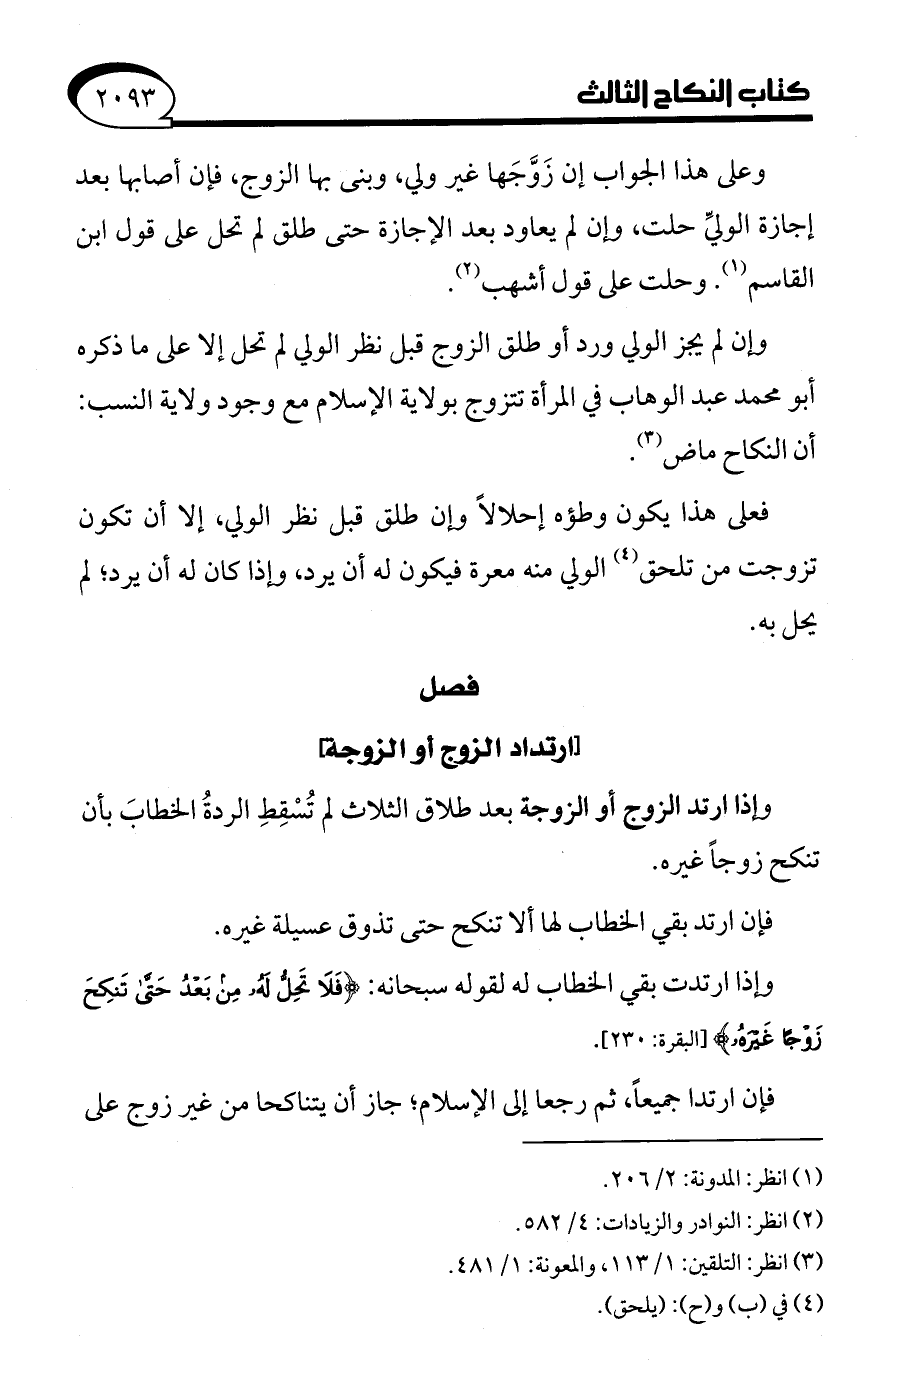 كتاب النكاح الثالث
٢٠٩٣
وعلى هذا الجواب إن زَوَّجَها غير ولي، وبنى بها الزوج، فإن أصابها بعد
إجازة الوليِّ حلت، وإن لم يعاود بعد الإجازة حتى طلق لم تحل على قول ابن
القاسم(١). وحلت على قول أشهب(٢).
وإن لم يجز الولي ورد أو طلق الزوج قبل نظر الولي لم تحل إلا على ما ذكره
أبو محمد عبد الوهاب في المرأة تتزوج بولاية الإسلام مع وجود ولاية النسب:
أن النكاح ماض(٣).
فعلى هذا يكون وطؤه إحلالاً وإن طلق قبل نظر الولي، إلا أن تكون
تزوجت من تلحق(٤) الولي منه معرة فيكون له أن يرد، وإذا كان له أن يرد؛ لم
يحل به.
فصل
[ارتداد الزوج أو الزوجة]
وإذا ارتد الزوج أو الزوجة بعد طلاق الثلاث لم تُسْقِطِ الردةُ الخطابَ بأن
تنكح زوجاً غيره.
فإن ارتد بقي الخطاب لها ألا تنكح حتى تذوق عسيلة غيره.
وإذا ارتدت بقي الخطاب له لقوله سبحانه: ﴿فَلَا تَحِلُّ لَهُۥ مِنۢ بَعْدُ حَتَّىٰ تَنكِحَ
زَوْجًا غَيْرَهُۥ﴾ [البقرة: ٢٣٠].
فإن ارتدا جميعاً، ثم رجعا إلى الإسلام؛ جاز أن يتناكحا من غير زوج على
(١) انظر: المدونة: ٢/ ٢٠٦.
(٢) انظر: النوادر والزيادات: ٤/ ٥٨٢.
(٣) انظر: التلقين: ١/ ١١٣، والمعونة: ١/ ٤٨١.
(٤) في (ب) و(ح): (يلحق).